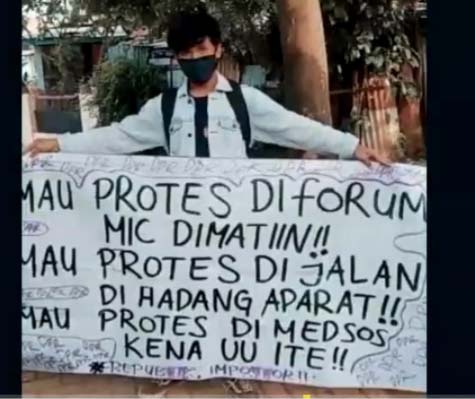 MAU PROTES DI FORUM
MIC DIMATIIN!!
MAU PROTES DI JALAN
DI HADANG APARAT!!
MAU PROTES DI MEDSOS
KENA UU ITE!!